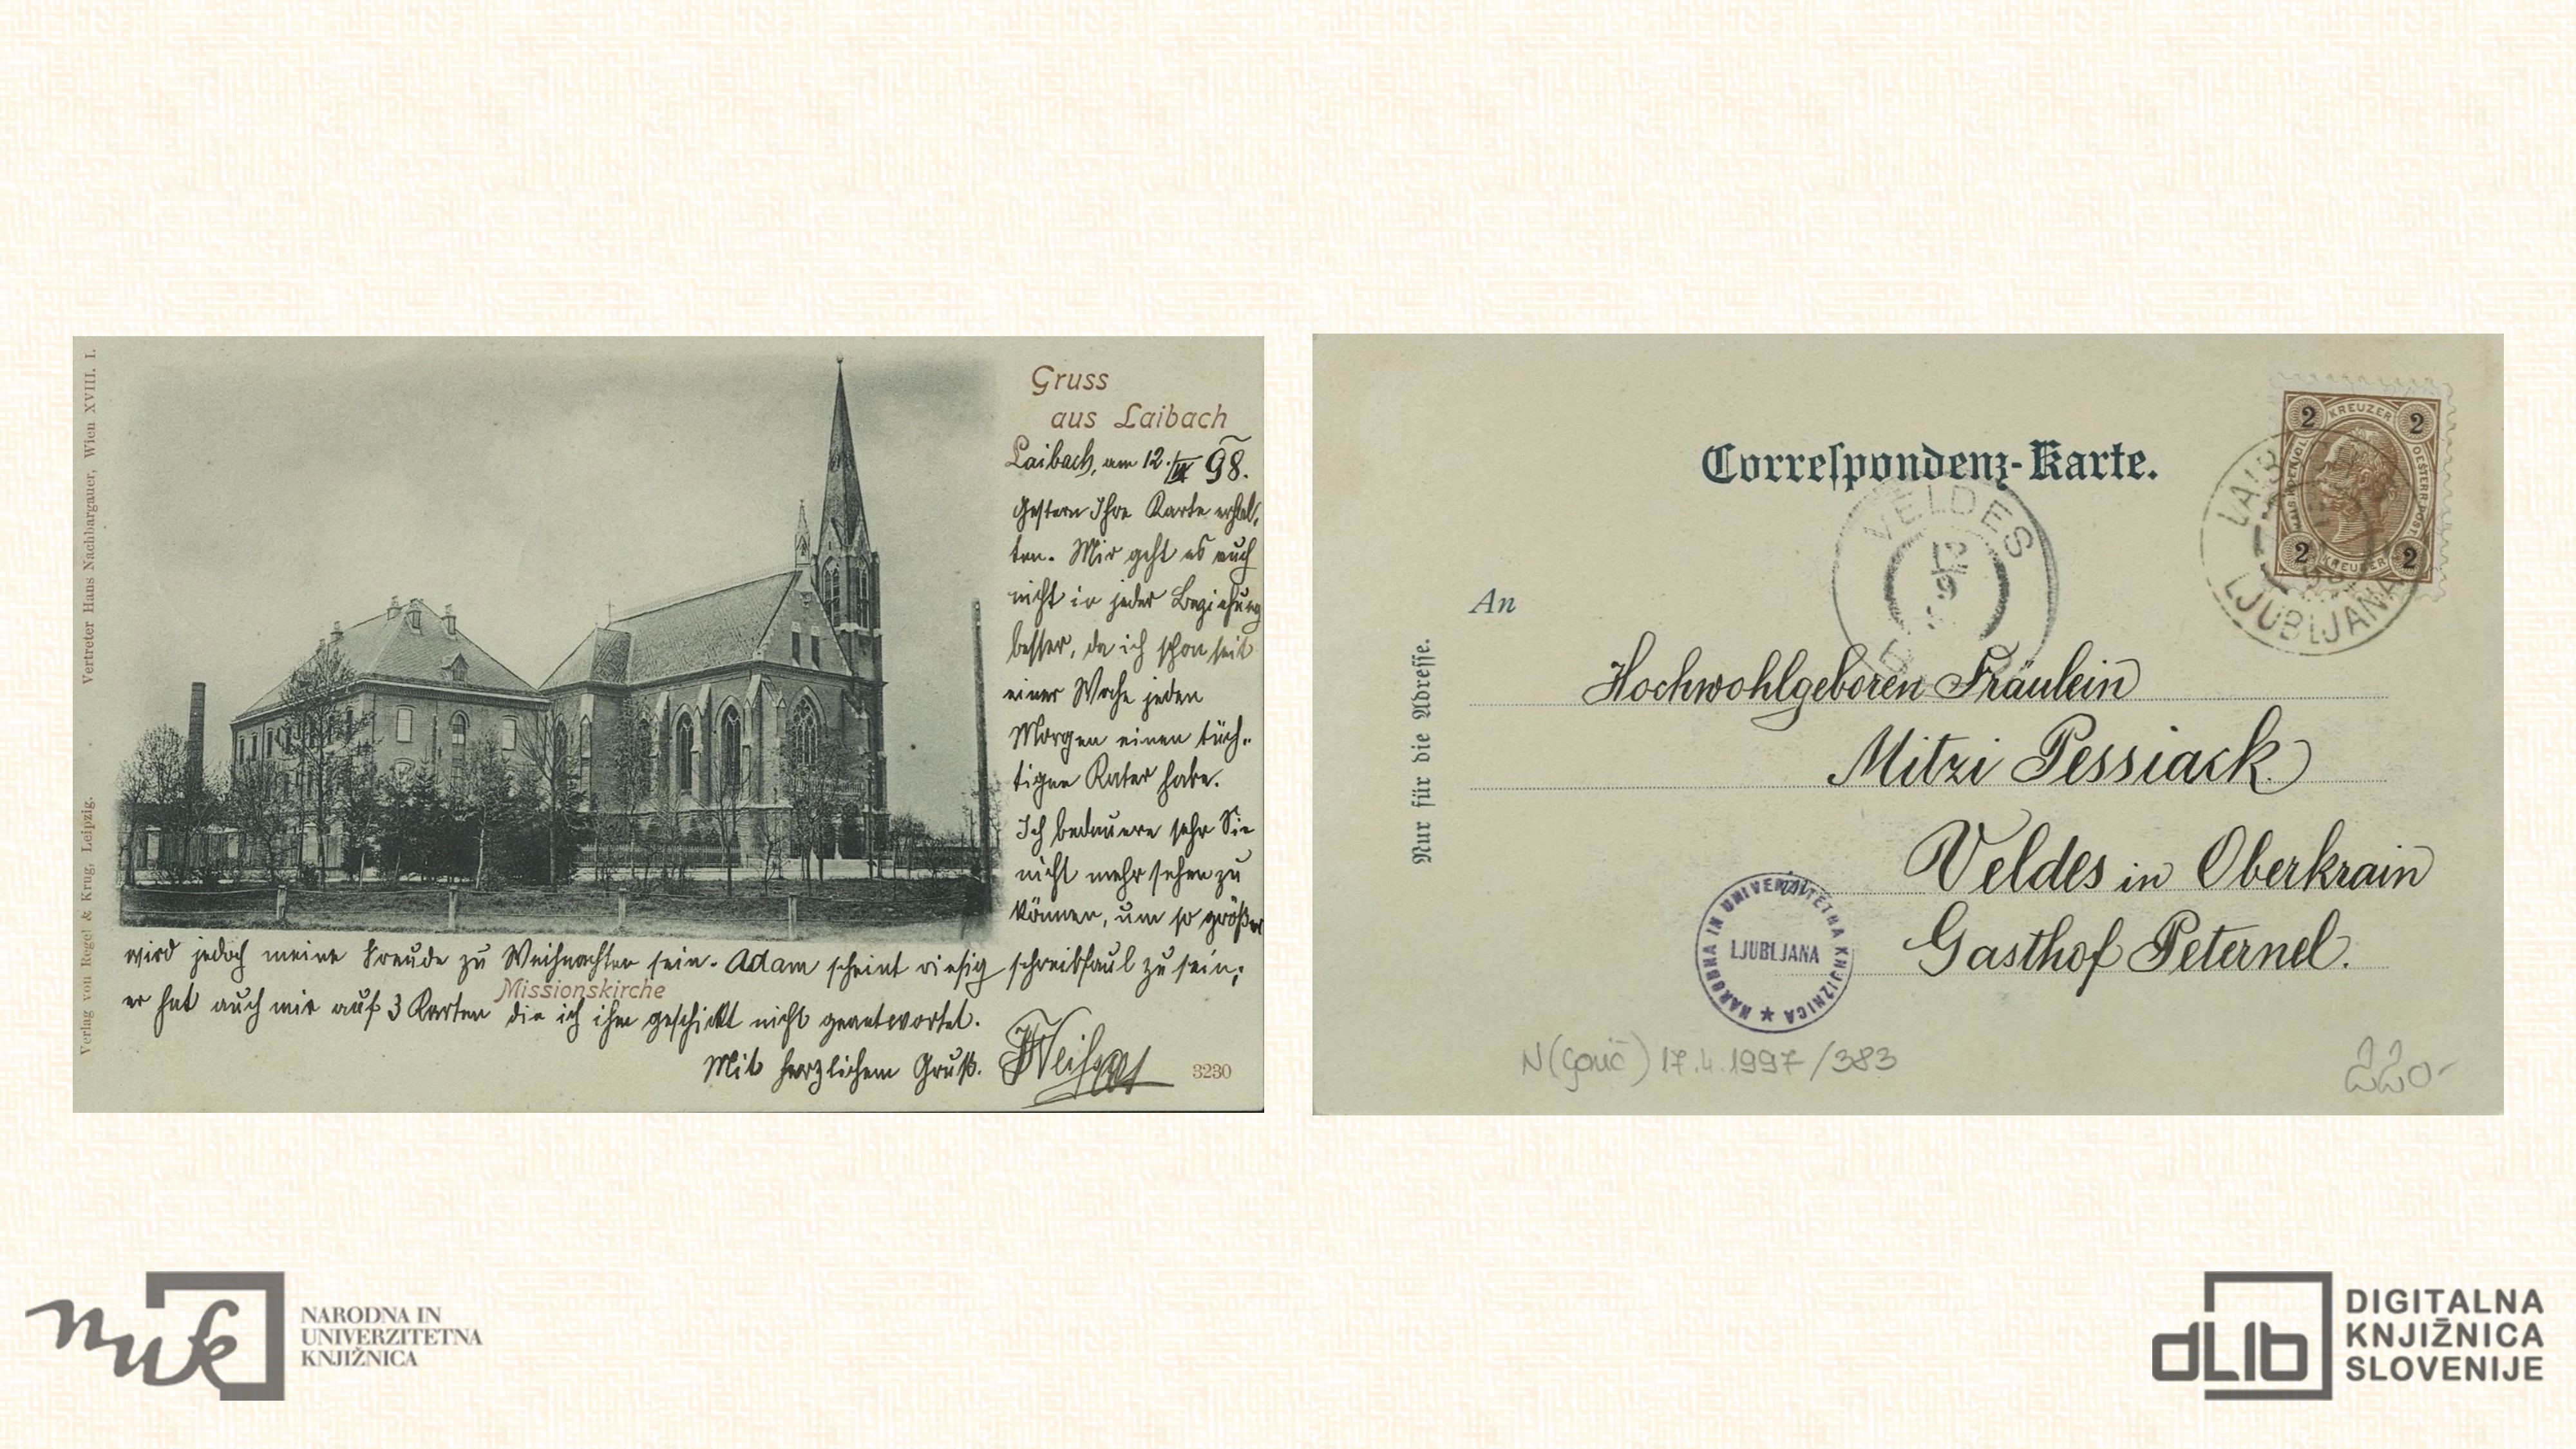 Verlag von Regel & Krug, Leipzig. Vertreter Hans Nachbargauer, Wien XVIII. I.
Gruss
aus Laibach
Laibach, am 12./IX 98.
Gestern Ihre Karte erhal-
ten. Mir geht es auch
nicht in jeder Beziehung
besser, da ich schon seit
einer Woche jeden
Morgen einen tüch-
tigen Kater habe.
Ich bedauere sehr Sie
nicht mehr sehen zu
können, um so größer
wird jedoch meine Freude zu Weihnachten sein. Adam scheint riesig schreibfaul zu sein;
Missionskirche
er hat auch mir auf 3 Karten die ich ihm geschickt nicht geantwortet.
Mit herzlichem Gruß.
3230
Correspondenz-Karte.
2 KREUZER 2
2 KREUZER 2
LAIBACH
LJUBLJANA
VELDES
12
9
An
Nur für die Adresse.
Hochwohlgeboren Fräulein
Mitzi Pessiack
Veldes in Oberkrain
Gasthof Peternel.
NARODNA IN UNIVERZITETNA KNJIŽNICA
LJUBLJANA
17.4.1997/383
220-
nuk
NARODNA IN
UNIVERZITETNA
KNJIŽNICA
dLib
DIGITALNA
KNJIŽNICA
SLOVENIJE